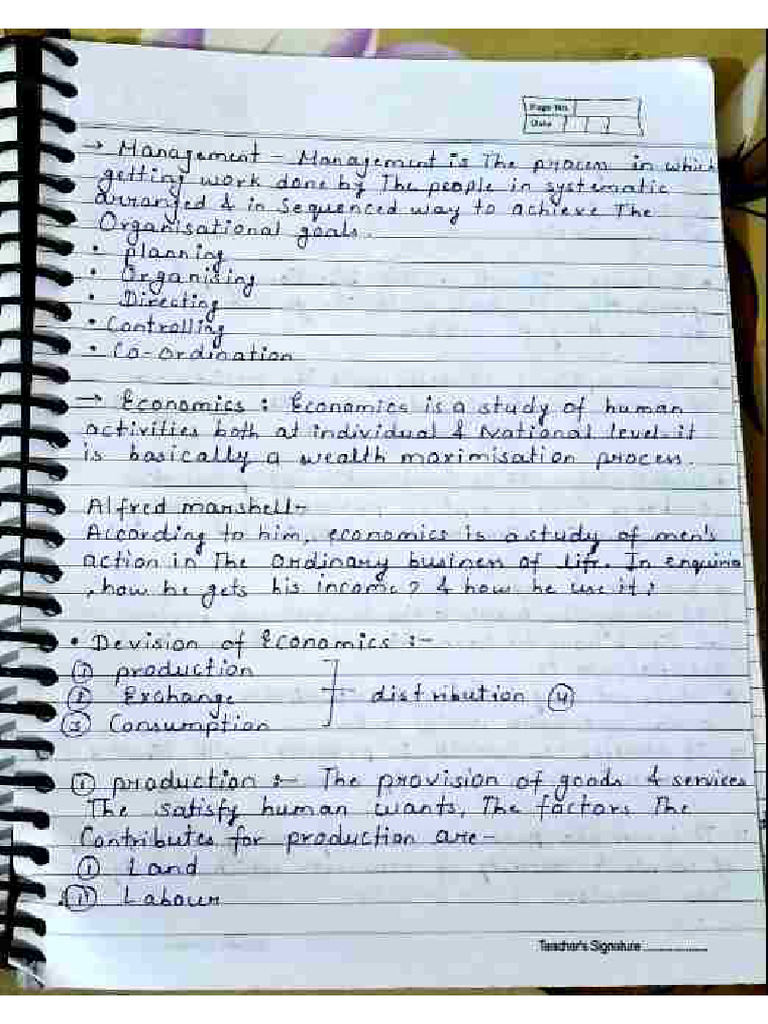 Page No.
Date
→ Management - Management is The process in which
getting work done by The people in systematic
arranged & in Sequenced way to achieve The
Organisational goals.
• planning
• Organising
• Directing
• Controlling
• Co-ordination
→ Economics : Economics is a study of human
activities both at individual & National level. it
is basically a wealth maximisation process.
Alfred marshell-
According to him, economics is a study of men's
action in The ordinary business of life. In enquiries
, how he gets his income? & how he use it?
• Devision of Economics :-
① production
② Exchange distribution ④
③ Consumption
① production :- The provision of goods & services
The satisfy human wants, The factors The
Contributes for production are-
① Land
(ii) Labour
Teacher's Signature